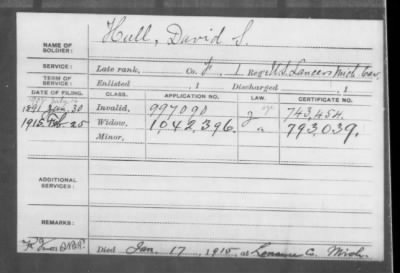 NAME OF SOLDIER: Hull, David S.
SERVICE: Late rank, Co. 1 Reg't U.S. Lancers Mich Cav.
TERM OF SERVICE: Enlisted , 1 Discharged , 1
DATE OF FILING. CLASS. APPLICATION NO. LAW. CERTIFICATE NO.
1891 Jan. 30 Invalid, 997090 743,454.
1915 Feb. 25 Widow, 1,042,396. 793,039.
Minor,
ADDITIONAL SERVICES:
REMARKS:
Died Jan. 17, 1915, at Lenawee Co. Mich.